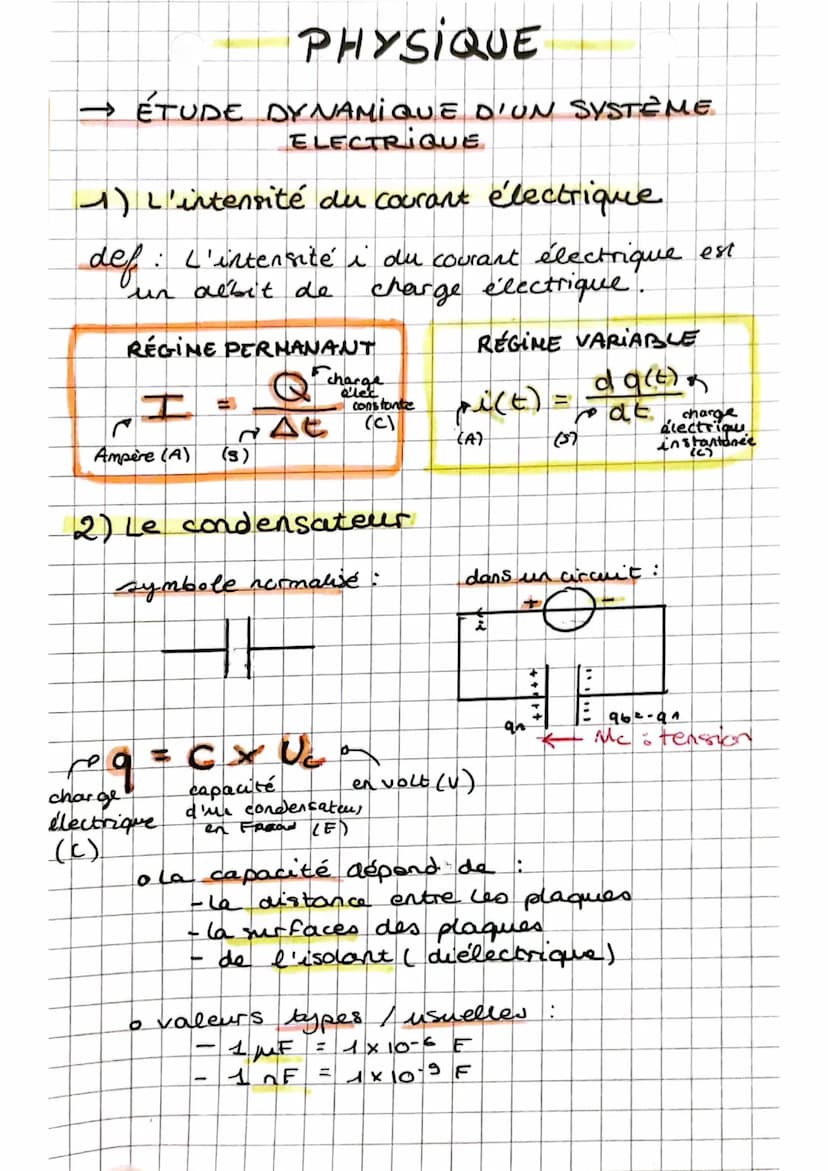 PHYSIQUE
→ ÉTUDE DYNAMIQUE D'UN SYSTÈME
ELECTRIQUE
1) L'intensité du courant électrique
def : L'intensité i du courant électrique est
un débit de charge électrique.
RÉGIME PERMANANT
I = Q / Δt
charge
élec
constante
(C)
Ampère (A) (s)
RÉGIME VARIABLE
i(t) = d q(t) / dt
(A) (s)
charge
électrique
instantanée
(C)
2) Le condensateur
symbole normalisé :
dans un circuit :
+ -
i
qA qB = -qA
← Mc : tension
q = C x Uc
charge
électrique
(C)
capacité
d'un condensateur
en Farad (F)
en volt (V)
o La capacité dépend de :
- La distance entre les plaques
- la surfaces des plaques
- de l'isolant (diélectrique)
o valeurs types / usuelles :
- 1 µF = 1 x 10-6 F
- 1 nF = 1 x 10-9 F